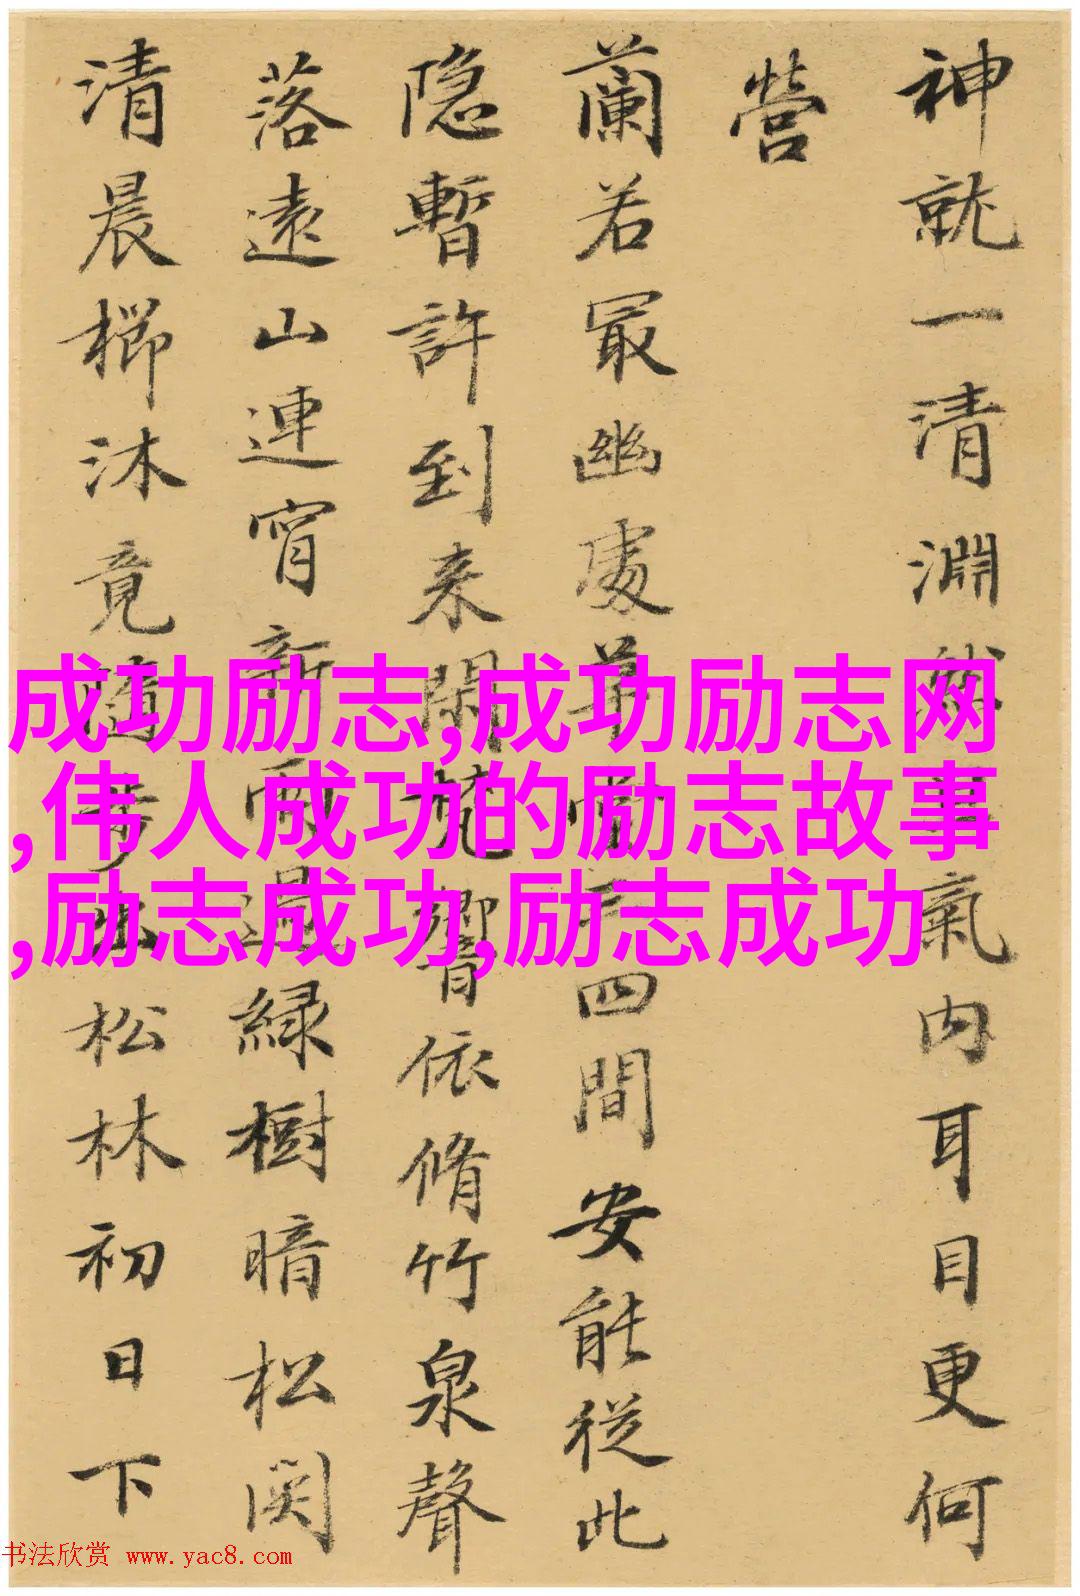 神就一清淵然氣内耳目更何
營
蘭若冣幽處茅四間安能從此
隐暫許到来閑梵響依脩竹泉聲
落遠山連宵新雨過緑樹暗松関
清晨櫛沐竟随步出松林初日下
成功励志,成功励志网
,伟人成功的励志故事
,励志成功,励志成功
书法欣赏 www.yac8.com